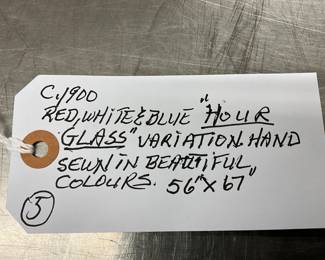 C1900
RED, WHITE & BLUE "HOUR
GLASS" VARIATION. HAND
SEWN IN BEAUTIFUL
COLOURS. 56" X 67"
5